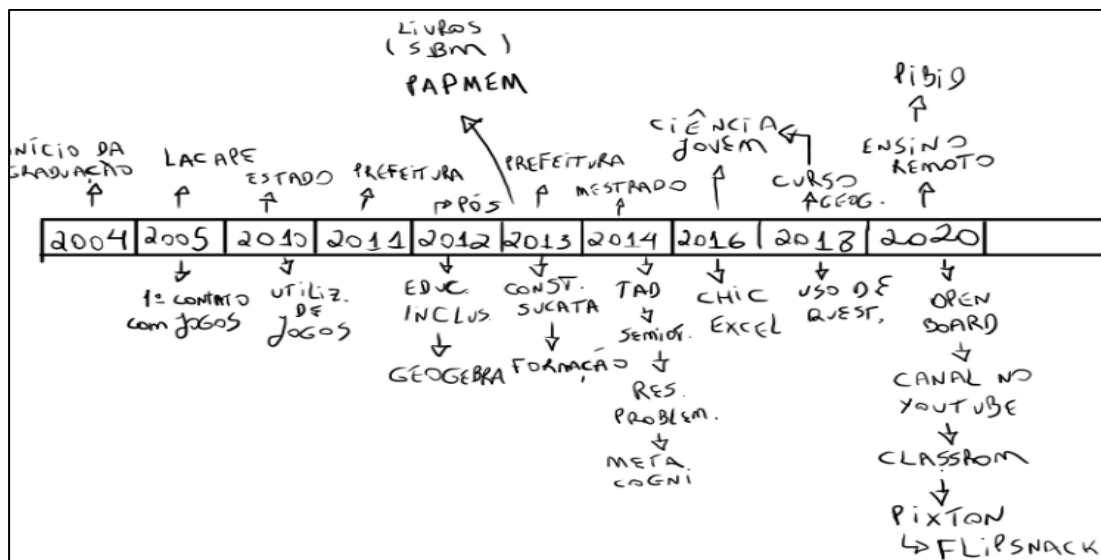 LIVROS
(SBM)
PAPMEM
PIBID
INÍCIO DA
GRADUAÇÃO
LACAPE
ESTADO
PREFEITURA
PÓS
PREFEITURA
MESTRADO
CIÊNCIA
JOVEM
CURSO
GEOG.
ENSINO
REMOTO
2004 2005 2010 2011 2012 2013 2014 2016 2018 2020
1º CONTATO
com JOGOS
UTILIZ.
DE
JOGOS
EDUC.
INCLUS.
GEOGEBRA
CONST.
SUCATA
FORMAÇÃO
TAD
SEMIOT.
RES.
PROBLEM.
META.
COGNI
CHIC
EXCEL
USO DE
QUEST.
OPEN
BOARD
CANAL NO
YOUTUBE
CLASSROM
PIXTON
FLIPSNACK